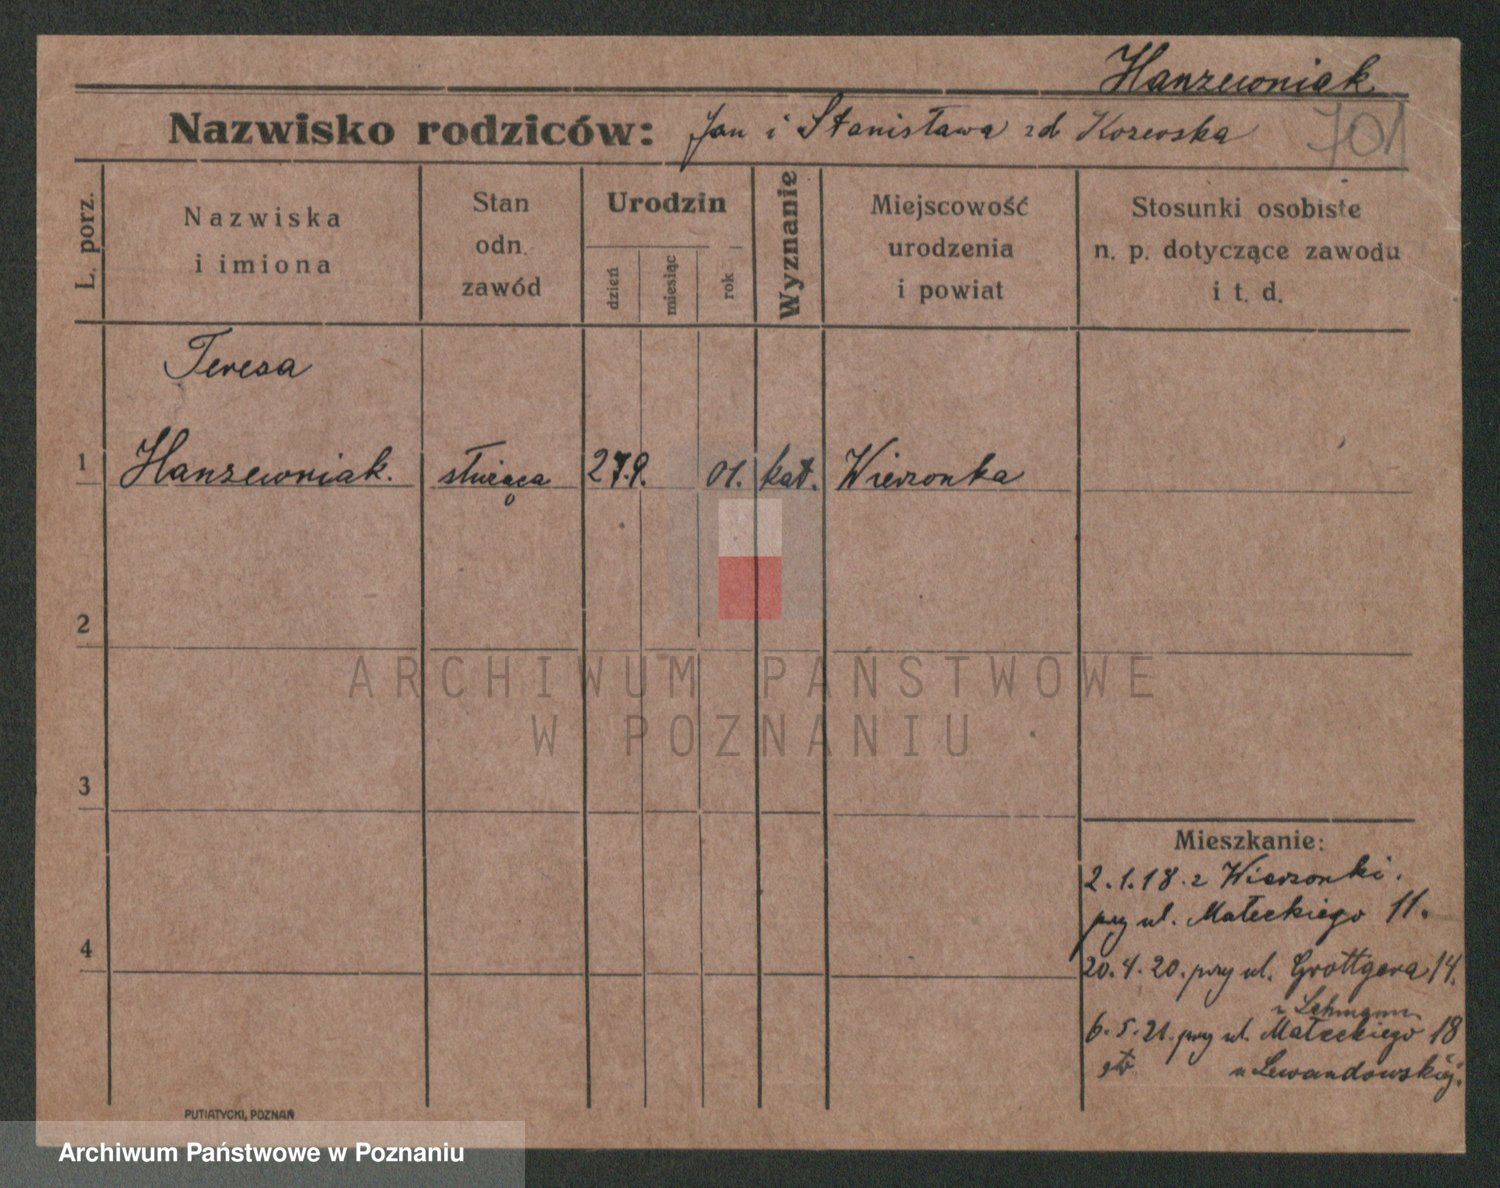 Hanzewniak
Nazwisko rodziców: Jan i Stanisława zd Kozewska
701
L. porz.
Nazwiska
i imiona
Stan
odn.
zawód
Urodzin
dzień
miesiąc
rok
Wyznanie
Miejscowość
urodzenia
i powiat
Stosunki osobiste
n. p. dotyczące zawodu
i t. d.
Teresa
1 Hanzewniak. służąca 27.9. 01. kat. Wierzonka
2
ARCHIWUM PAŃSTWOWE
W POZNANIU
3
Mieszkanie:
2.1.18. z Wierzonki.
przy ul. Małeckiego 11.
4
20.4.20. przy ul. Grottgera 14.
u Lehmann
6.5.21. przy ul. Małeckiego 18
u Lewandowskiéj.
PUTIATYCKI, POZNAŃ
Archiwum Państwowe w Poznaniu